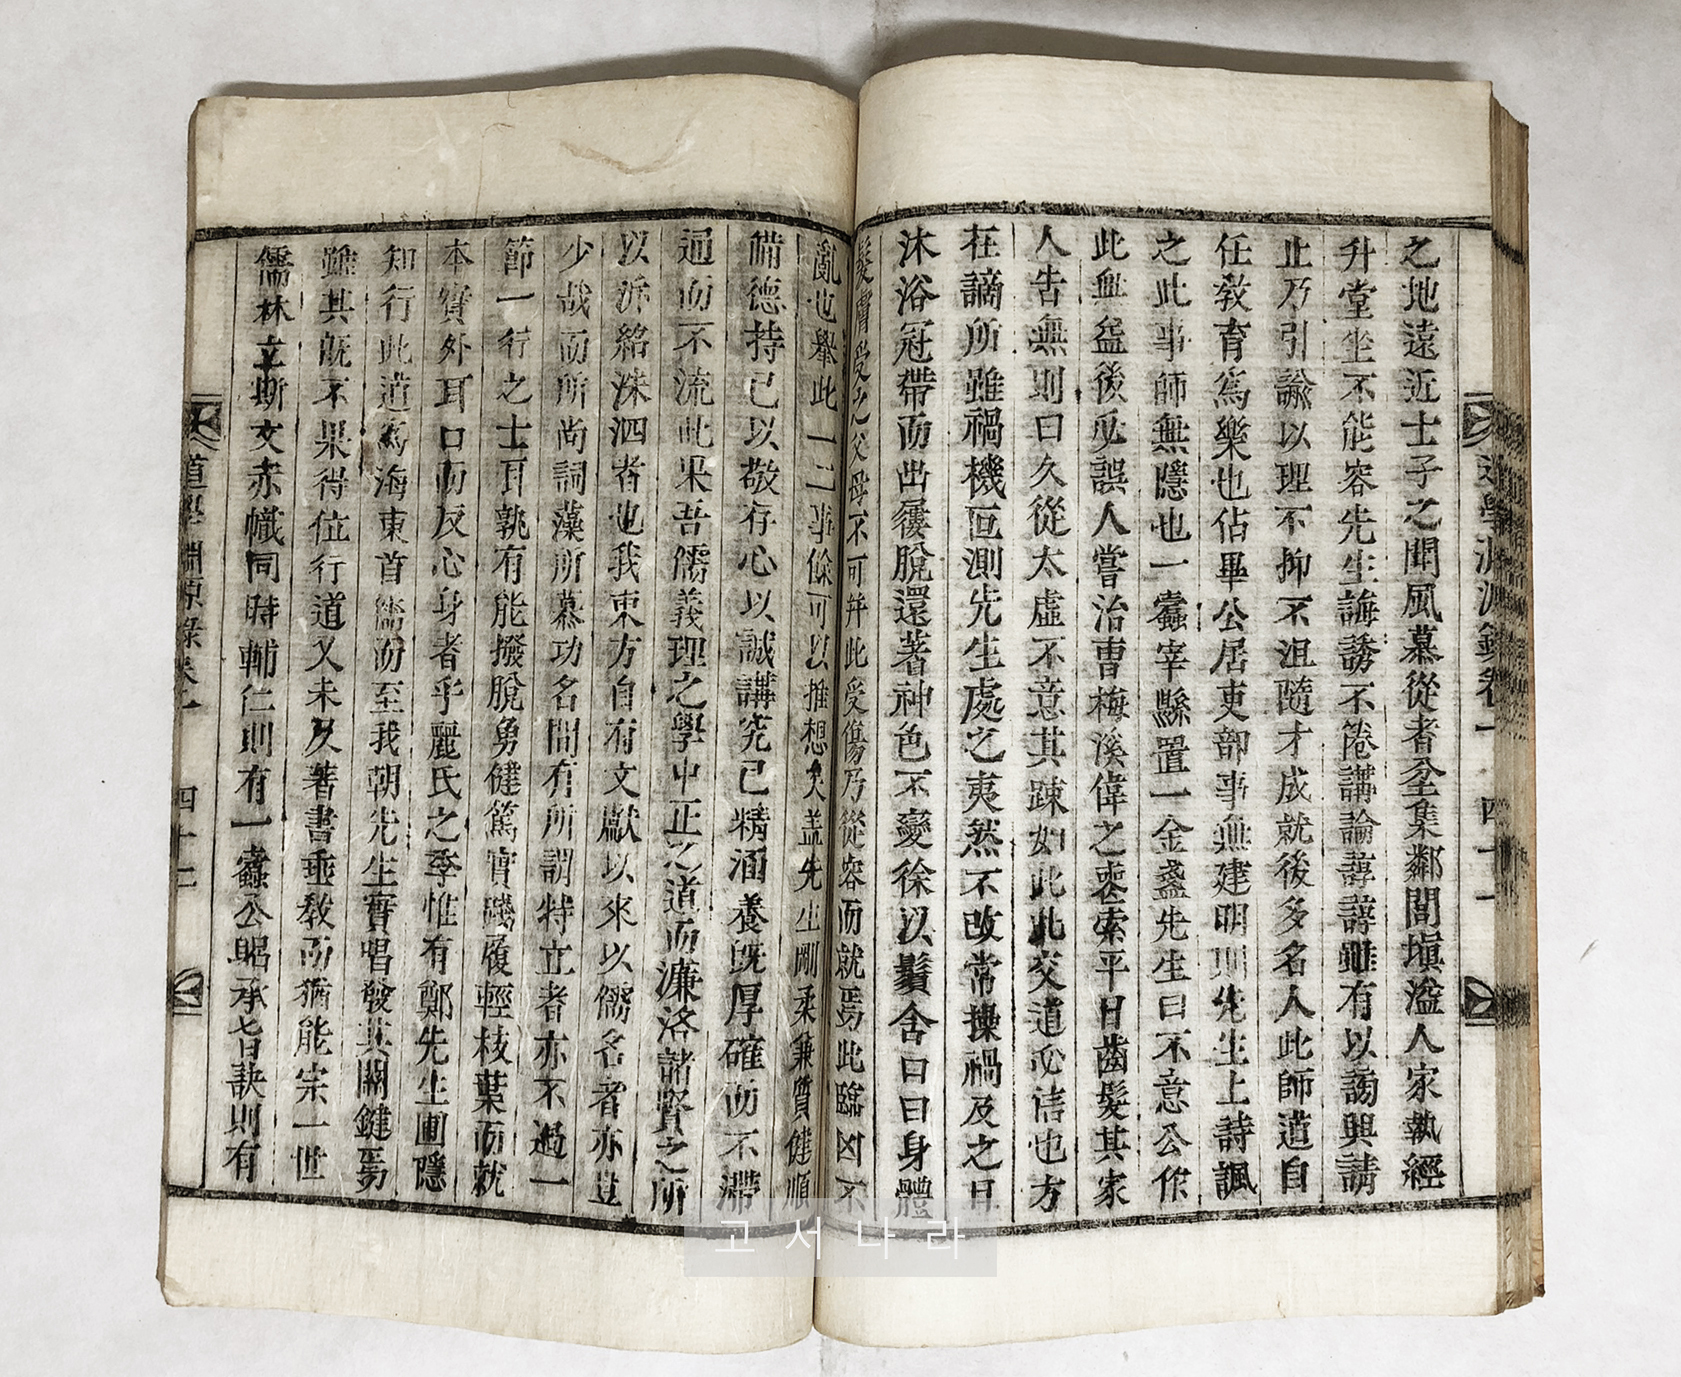 之地遠近士子之聞風慕從者坌集鄰閭塡溢人家執經
升堂坐不能容先生誨誘不倦講論諄諄雖有以謗興請
止乃引諭以理不抑不沮隨才成就後多名人此師道自
任敎育爲樂也佔畢公居吏部事無建明則先生上詩諷
之此事師無隱也一蠹宰縣置一金盞先生曰不意公作
此無益後必誤人嘗治曺梅溪偉之喪索平日齒髮其家
人告無則曰久從太虛不意其踈如此此交道必信也方
在謫所雖禍機叵測先生處之夷然不改常操禍及之日
沐浴冠帶而出屨脫還著神色不變徐以鬚含口曰身體
髮膚受之父母不可幷此受傷乃從容而就焉此臨凶不
亂也擧此一二事餘可以推想矣盖先生剛柔兼質健順
備德持己以敬存心以誠講究已精涵養旣厚確而不滯
通而不流此果吾儒義理之學中正之道而濂洛諸賢之所
以泝紹洙泗者也我東方自有文獻以來以儒名者亦豈
少哉而所尙詞藻所慕功名間有所謂特立者亦不過一
節一行之士耳孰有能撥脫勇健篤實磯履輕枝葉而就
本實外耳口而反心身者乎麗氏之季惟有鄭先生圃隱
知行此道爲海東首儒而至我朝先生實唱發其關鍵焉
雖其旣不果得位行道又未及著書垂敎而猶能宗一世
儒林立斯文赤幟同時輔仁則有一蠹公昭承旨訣則有
道學淵源錄卷一 四十二
道學淵源錄卷一 四十一
고서나라